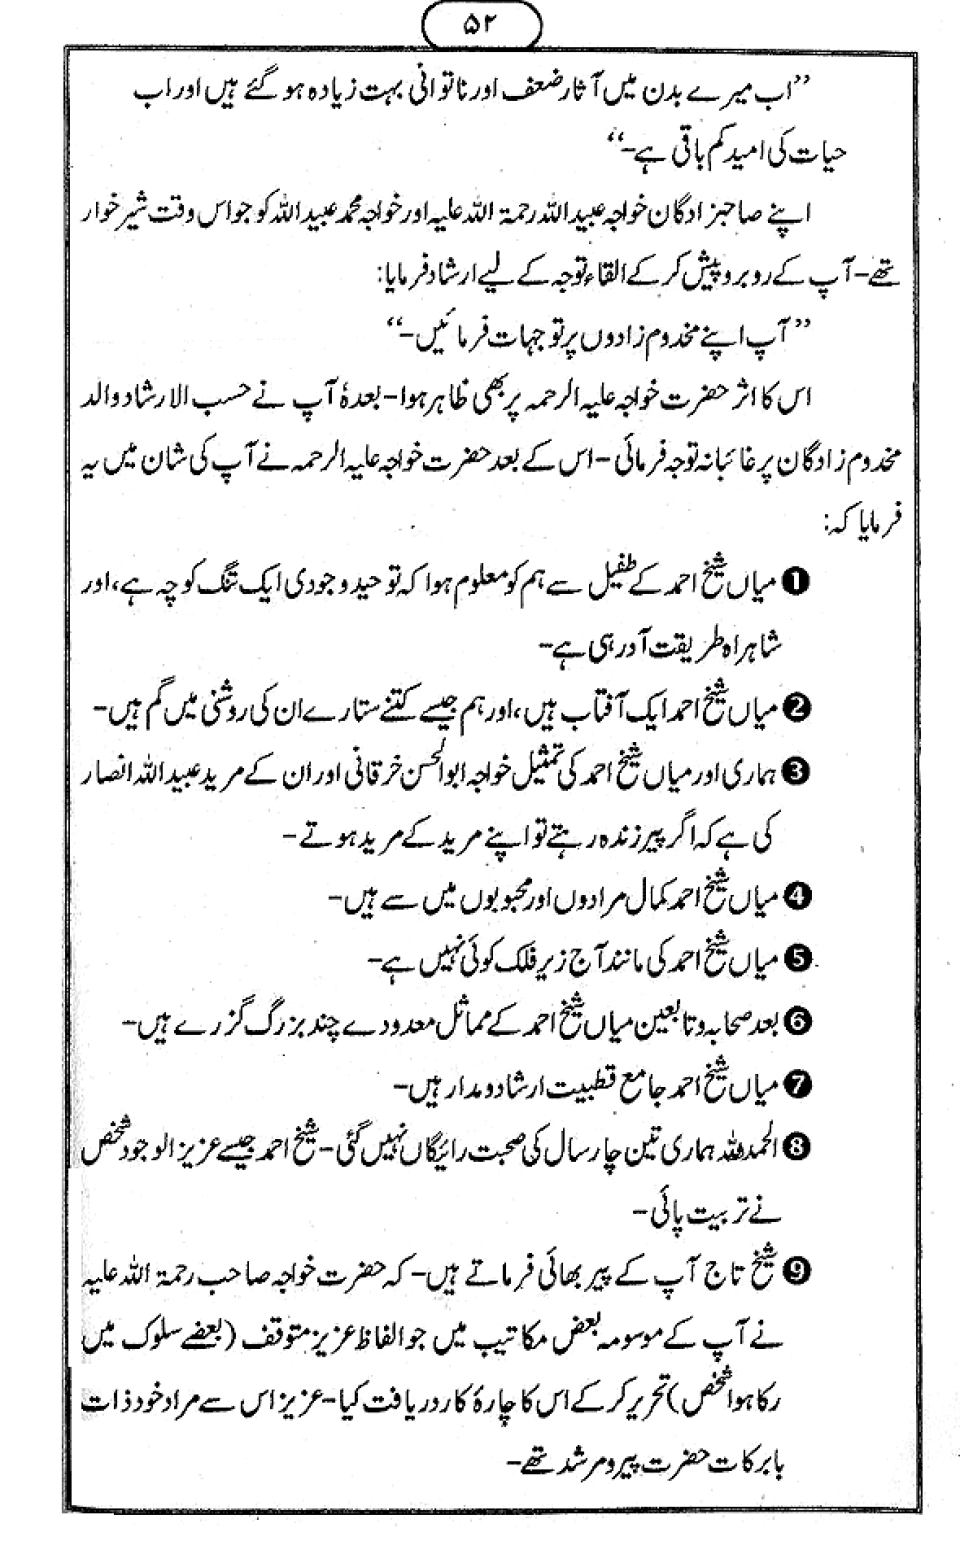 ۵۲
”اب میرے بدن میں آثار ضعف اور ناتوانی بہت زیادہ ہو گئے ہیں اور اب
حیات کی امید کم باقی ہے۔“
اپنے صاحبزادگان خواجہ عبیداللہ رحمۃ اللہ علیہ اور خواجہ محمد عبیداللہ کو جو اس وقت شیر خوار
تھے۔ آپ کے روبرو پیش کر کے القاء توجہ کے لیے ارشاد فرمایا:
”آپ اپنے مخدوم زادوں پر توجہات فرمائیں۔“
اس کا اثر حضرت خواجہ علیہ الرحمہ پر بھی ظاہر ہوا۔ بعدہٗ آپ نے حسب الارشاد والد
مخدوم زادگان پر غائبانہ توجہ فرمائی۔ اس کے بعد حضرت خواجہ علیہ الرحمہ نے آپ کی شان میں یہ
فرمایا کہ:
❶ میاں شیخ احمد کے طفیل سے ہم کو معلوم ہوا کہ توحید وجودی ایک تنگ کوچہ ہے، اور
شاہراہ طریقت آور ہی ہے۔
❷ میاں شیخ احمد ایک آفتاب ہیں، اور ہم جیسے کتنے ستارے ان کی روشنی میں گم ہیں۔
❸ ہماری اور میاں شیخ احمد کی تمثیل خواجہ ابوالحسن خرقانی اور ان کے مرید عبیداللہ انصار
کی ہے کہ اگر پیر زندہ رہتے تو اپنے مرید کے مرید ہوتے۔
❹ میاں شیخ احمد کمال مرادوں اور محبوبوں میں سے ہیں۔
❺ میاں شیخ احمد کی مانند آج زیر فلک کوئی نہیں ہے۔
❻ بعد صحابہ و تابعین میاں شیخ احمد کے مماثل معدودے چند بزرگ گزرے ہیں۔
❼ میاں شیخ احمد جامع قطبیت ارشاد و مدار ہیں۔
❽ الحمدللہ ہماری تین چار سال کی صحبت رائیگاں نہیں گئی۔ شیخ احمد جیسے عزیز الوجود شخص
نے تربیت پائی۔
❾ شیخ تاج آپ کے پیر بھائی فرماتے ہیں۔ کہ حضرت خواجہ صاحب رحمۃ اللہ علیہ
نے آپ کے موسومہ بعض مکاتیب میں جو الفاظ عزیز متوقف (بعضے سلوک میں
رکا ہوا شخص) تحریر کر کے اس کا چارۂ کار دریافت کیا۔ عزیز اس سے مراد خود ذات
بابرکات حضرت پیر و مرشد تھے۔